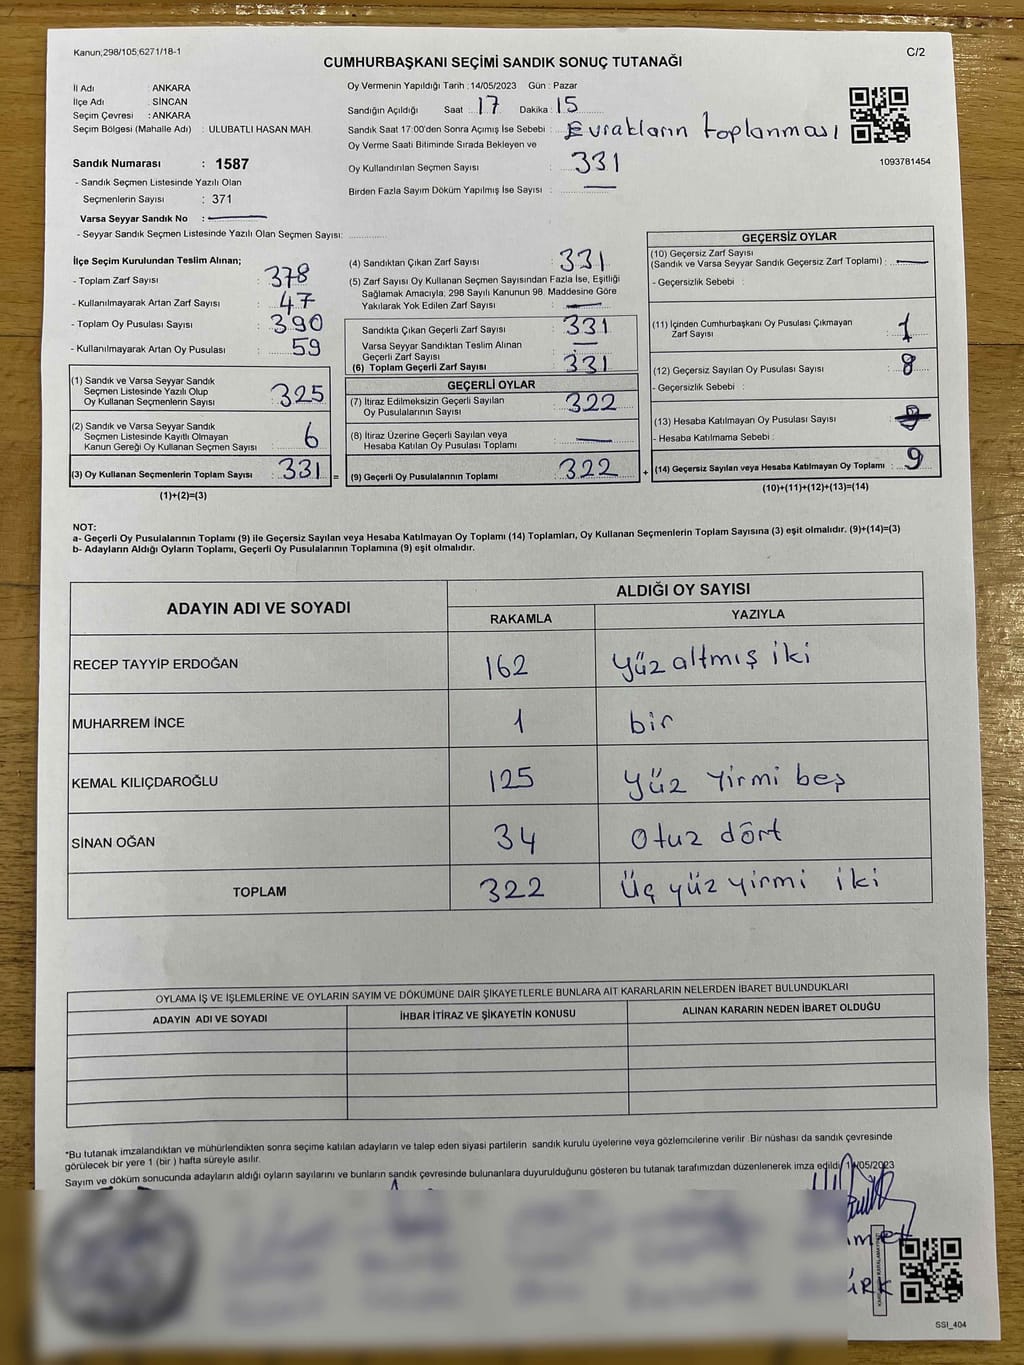 Kanun;298/105;6271/18-1
C/2
CUMHURBAŞKANI SEÇİMİ SANDIK SONUÇ TUTANAĞI
İl Adı : ANKARA
İlçe Adı : SİNCAN
Seçim Çevresi : ANKARA
Seçim Bölgesi (Mahalle Adı) : ULUBATLI HASAN MAH.
Sandık Numarası : 1587
- Sandık Seçmen Listesinde Yazılı Olan
Seçmenlerin Sayısı : 371
Varsa Seyyar Sandık No :
- Seyyar Sandık Seçmen Listesinde Yazılı Olan Seçmen Sayısı:
Oy Vermenin Yapıldığı Tarih : 14/05/2023 Gün : Pazar
Sandığın Açıldığı Saat : 17 Dakika : 15
Sandık Saat 17:00'den Sonra Açımış İse Sebebi : Evrakların toplanması
Oy Verme Saati Bitiminde Sırada Bekleyen ve
Oy Kullandırılan Seçmen Sayısı : 331
Birden Fazla Sayım Döküm Yapılmış İse Sayısı : —
1093781454
İlçe Seçim Kurulundan Teslim Alınan;
- Toplam Zarf Sayısı : 378
- Kullanılmayarak Artan Zarf Sayısı : 47
- Toplam Oy Pusulası Sayısı : 390
- Kullanılmayarak Artan Oy Pusulası : 59
(1) Sandık ve Varsa Seyyar Sandık
Seçmen Listesinde Yazılı Olup
Oy Kullanan Seçmenlerin Sayısı : 325
(2) Sandık ve Varsa Seyyar Sandık
Seçmen Listesinde Kayıtlı Olmayan
Kanun Gereği Oy Kullanan Seçmen Sayısı : 6
(3) Oy Kullanan Seçmenlerin Toplam Sayısı : 331 =
(1)+(2)=(3)
(4) Sandıktan Çıkan Zarf Sayısı : 331
(5) Zarf Sayısı Oy Kullanan Seçmen Sayısından Fazla İse, Eşitliği
Sağlamak Amacıyla; 298 Sayılı Kanunun 98. Maddesine Göre
Yakılarak Yok Edilen Zarf Sayısı : —
Sandıkta Çıkan Geçerli Zarf Sayısı : 331
Varsa Seyyar Sandıktan Teslim Alınan
Geçerli Zarf Sayısı : —
(6) Toplam Geçerli Zarf Sayısı : 331
GEÇERLİ OYLAR
(7) İtiraz Edilmeksizin Geçerli Sayılan
Oy Pusulalarının Sayısı : 322
(8) İtiraz Üzerine Geçerli Sayılan veya
Hesaba Katılan Oy Pusulası Toplamı : —
(9) Geçerli Oy Pusulalarının Toplamı : 322 +
GEÇERSİZ OYLAR
(10) Geçersiz Zarf Sayısı
(Sandık ve Varsa Seyyar Sandık Geçersiz Zarf Toplamı) : —
- Geçersizlik Sebebi :
(11) İçinden Cumhurbaşkanı Oy Pusulası Çıkmayan
Zarf Sayısı : 1
(12) Geçersiz Sayılan Oy Pusulası Sayısı : 8
- Geçersizlik Sebebi :
(13) Hesaba Katılmayan Oy Pusulası Sayısı :
- Hesaba Katılmama Sebebi :
(14) Geçersiz Sayılan veya Hesaba Katılmayan Oy Toplamı : 9
(10)+(11)+(12)+(13)=(14)
NOT:
a- Geçerli Oy Pusulalarının Toplamı (9) ile Geçersiz Sayılan veya Hesaba Katılmayan Oy Toplamı (14) Toplamları, Oy Kullanan Seçmenlerin Toplam Sayısına (3) eşit olmalıdır. (9)+(14)=(3)
b- Adayların Aldığı Oyların Toplamı, Geçerli Oy Pusulalarının Toplamına (9) eşit olmalıdır.
ADAYIN ADI VE SOYADI
ALDIĞI OY SAYISI
RAKAMLA YAZIYLA
RECEP TAYYİP ERDOĞAN 162 yüz altmış iki
MUHARREM İNCE 1 bir
KEMAL KILIÇDAROĞLU 125 yüz yirmi beş
SİNAN OĞAN 34 Otuz dört
TOPLAM 322 üç yüz yirmi iki
OYLAMA İŞ VE İŞLEMLERİNE VE OYLARIN SAYIM VE DÖKÜMÜNE DAİR ŞİKAYETLERLE BUNLARA AİT KARARLARIN NELERDEN İBARET BULUNDUKLARI
ADAYIN ADI VE SOYADI İHBAR İTİRAZ VE ŞİKAYETİN KONUSU ALINAN KARARIN NEDEN İBARET OLDUĞU
*Bu tutanak imzalandıktan ve mühürlendikten sonra seçime katılan adayların ve talep eden siyasi partilerin sandık kurulu üyelerine veya gözlemcilerine verilir Bir nüshası da sandık çevresinde
görülecek bir yere 1 (bir ) hafta süreyle asılır.
Sayım ve döküm sonucunda adayların aldığı oyların sayılarını ve bunların sandık çevresinde bulunanlara duyurulduğunu gösteren bu tutanak tarafımızdan düzenlenerek imza edildi /05/2023
SSI_404